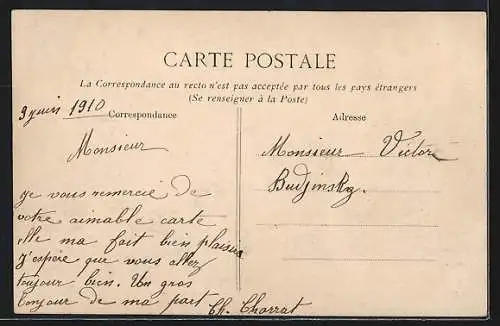 CARTE POSTALE
La Correspondance au recto n'est pas acceptée par tous les pays étrangers
(Se renseigner à la Poste)
9 juin 1910
Correspondance
Monsieur
Je vous remercie de
votre aimable carte
elle ma fait bien plaisir
J'espère que vous allez
toujour bien. Un gros
bonjour de ma part
Ch. Charrat
Adresse
Monsieur Victor
Budjinsky.